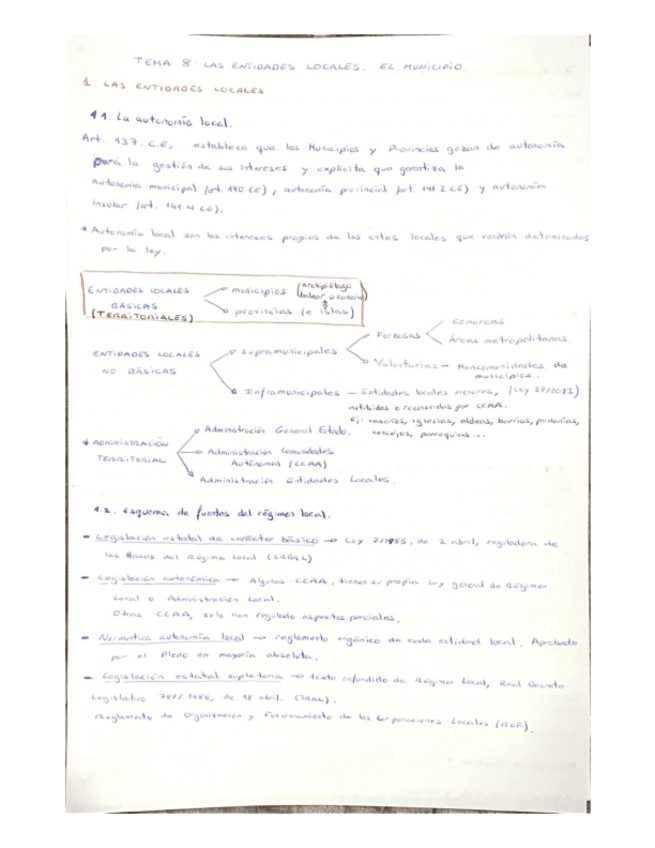 TEMA 8: LAS ENTIDADES LOCALES. EL MUNICIPIO.
1. LAS ENTIDADES LOCALES
1.1. La autonomía local.
Art. 137. C.E, establece que los Municipios y Provincias gozan de autonomía
para la gestión de sus intereses y explicita que garantiza la
autonomía municipal (art. 140 CE), autonomía provincial (art. 141.2 CE) y autonomía
insular (art. 141.4 CE).
* Autonomía local son los intereses propios de los entes locales que vendrán determinados
por la ley.
ENTIDADES LOCALES BÁSICAS (TERRITORIALES)
municipios (archipiélago balear o canario)
provincias (e islas)
ENTIDADES LOCALES NO BÁSICAS
supramunicipales
Forzosas
Comarcas
Áreas metropolitanas.
Voluntarias - Mancomunidades de
municipios.
Inframunicipales - Entidades locales menores, (Ley 27/2013)
instituidas o reconocidas por CCAA.
Ej: caseríos, iglesias, aldeas, barrios, pedanías,
concejos, parroquias...
* ADMINISTRACIÓN TERRITORIAL
Administración General Estado.
Administración Comunidades
Autónomas (CCAA)
Administración Entidades Locales.
1.2. Esquema de fuentes del régimen local.
- Legislación estatal de carácter básico → Ley 7/1985, de 2 abril, reguladora de
las Bases del Régimen Local (LRBRL)
- Legislación autonómica → Algunas CCAA, tienen su propia Ley general de Régimen
Local o Administración Local.
Otras CCAA, solo han regulado aspectos parciales.
- Normativa autonomía local → reglamento orgánico de cada entidad local. Aprobado
por el Pleno en mayoría absoluta.
- Legislación estatal supletoria → texto refundido de Régimen Local, Real Decreto
Legislativo 781/1986, de 18 abril. (TRRL).
Reglamento de Organización y Funcionamiento de las Corporaciones Locales (ROF).